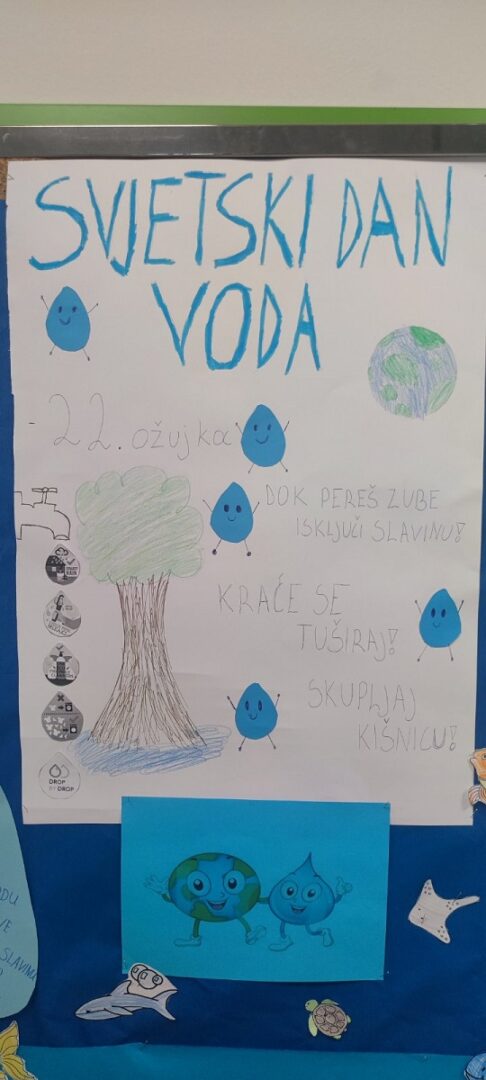 SVJETSKI DAN
VODA
- 22. ožujka
DOK PEREŠ ZUBE
ISKLJUČI SLAVINU!
KRAĆE SE
TUŠIRAJ!
SKUPLJAJ
KIŠNICU!
DROP
BY DROP
SLAVINA